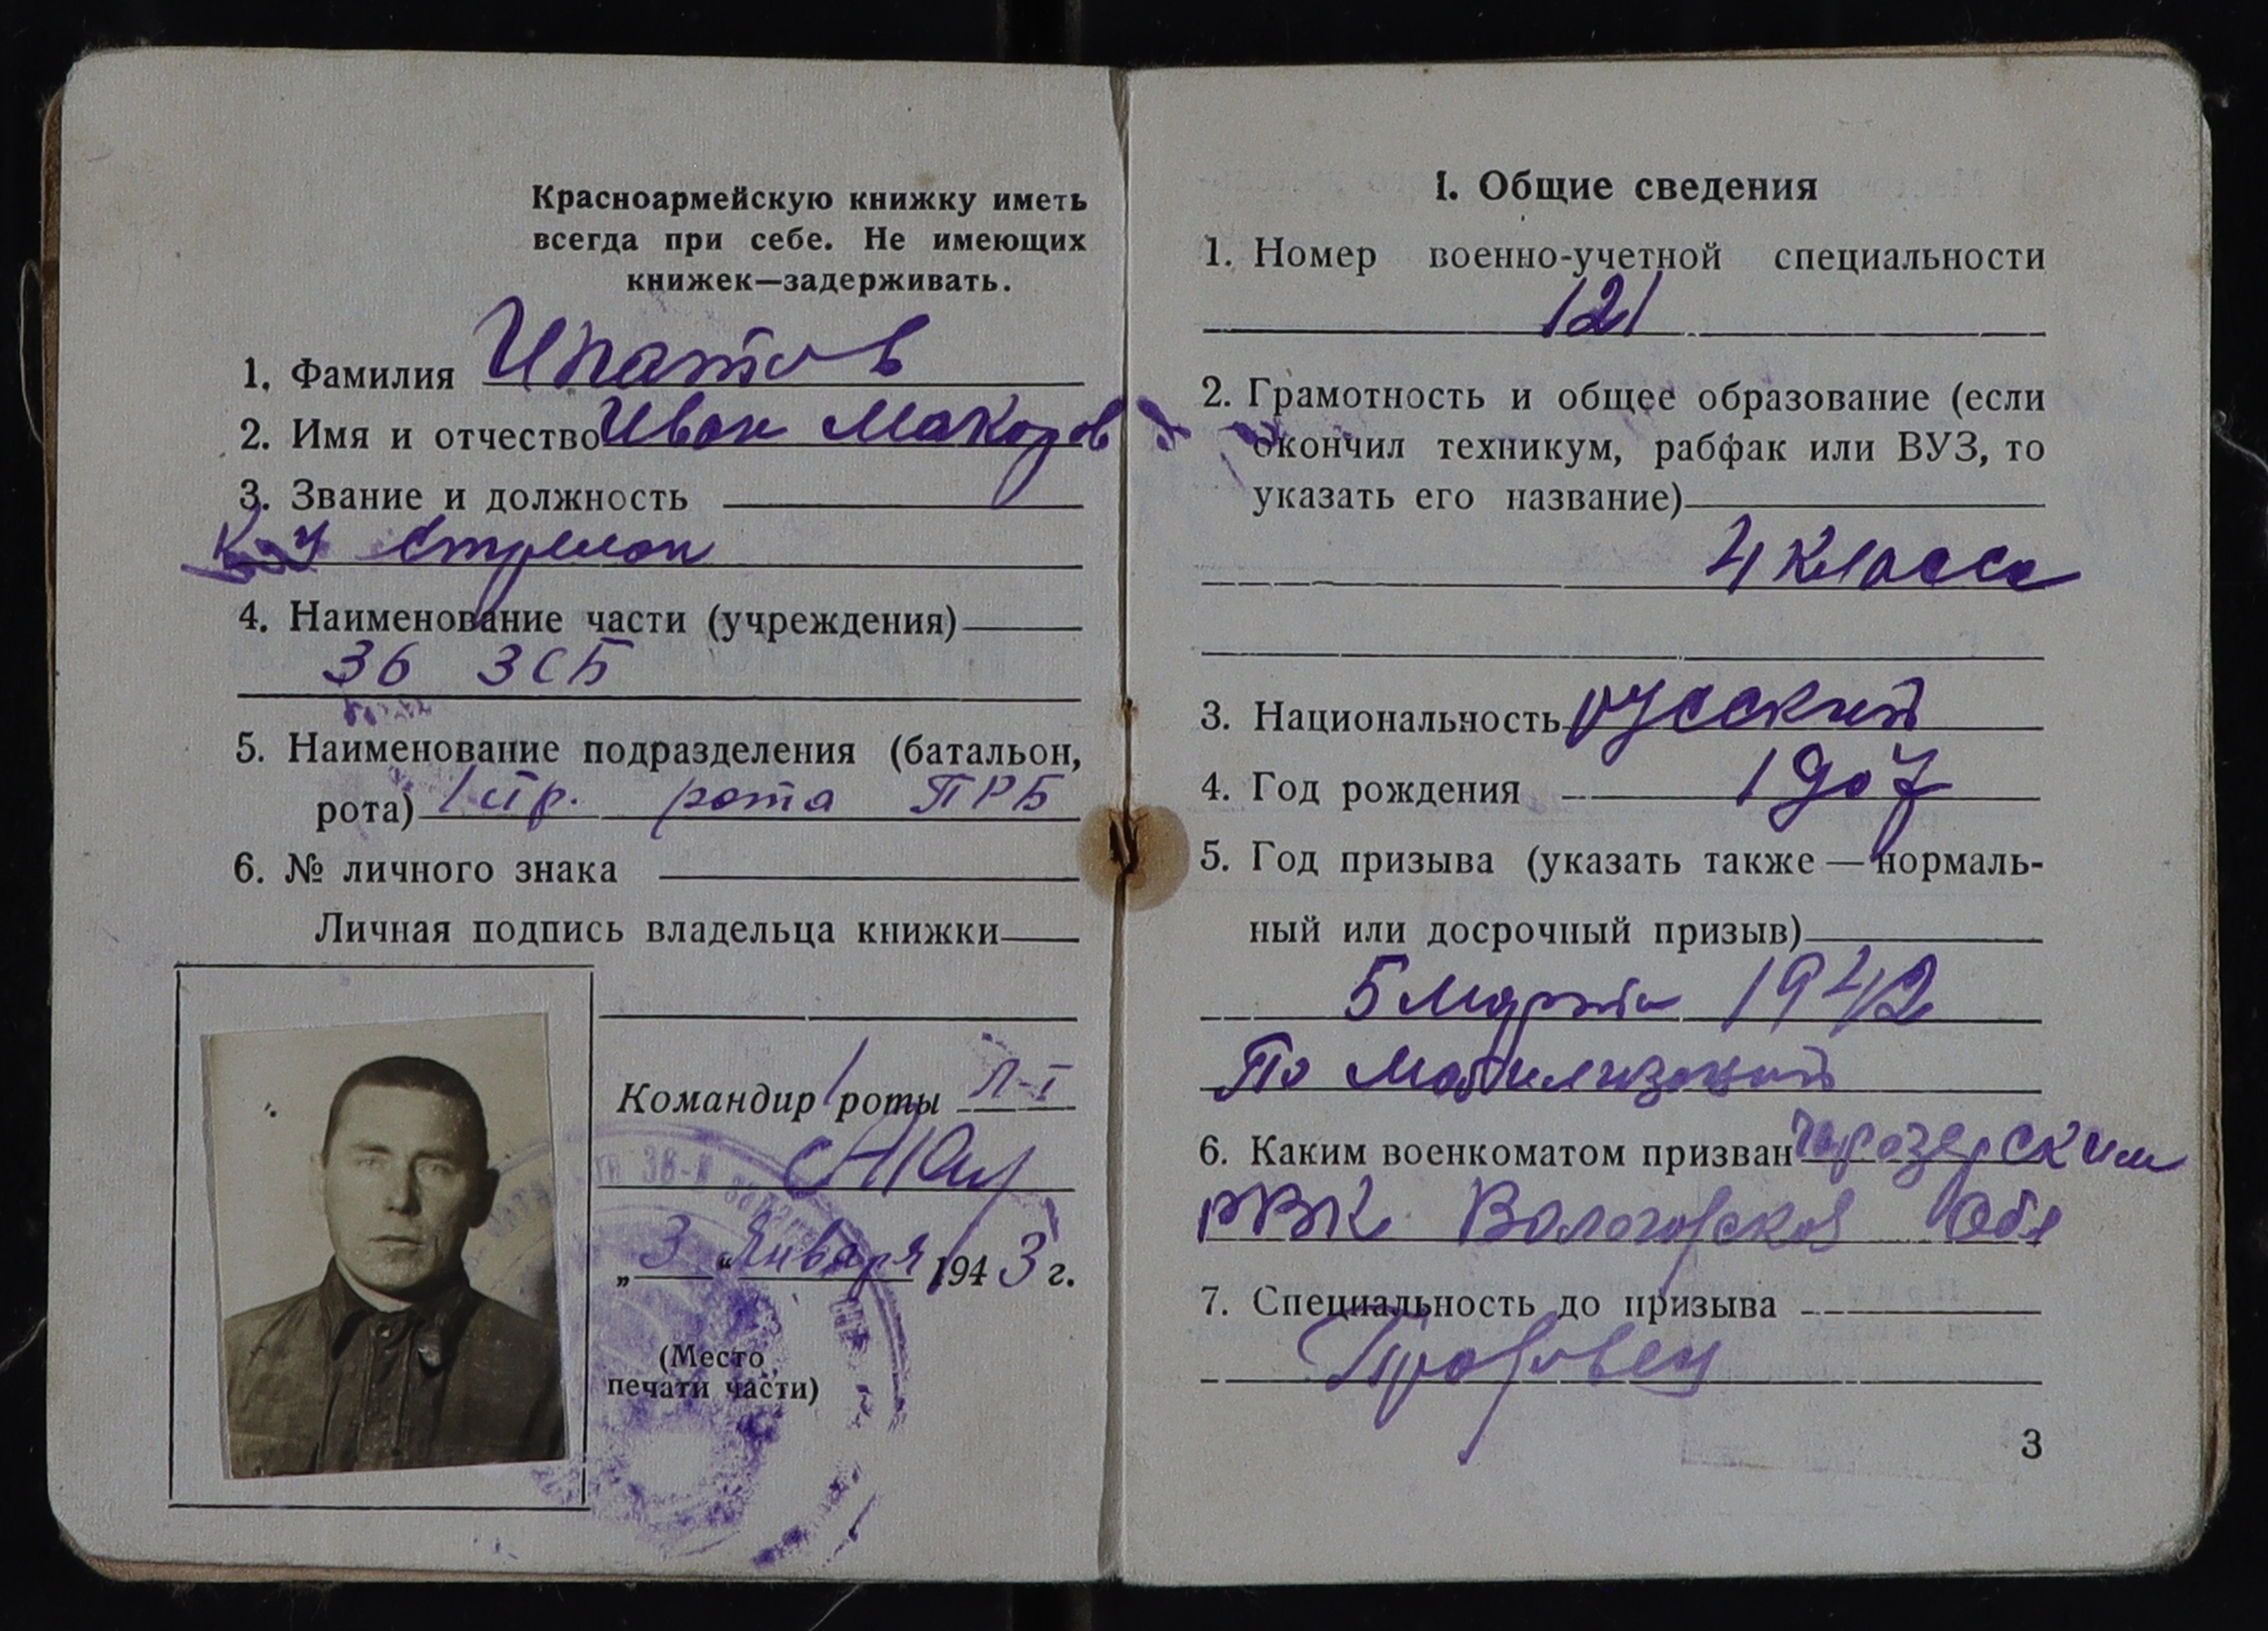 Красноармейскую книжку иметь
всегда при себе. Не имеющих
книжек—задерживать.
1. Фамилия Ипатов
2. Имя и отчество Иван Макаров
3. Звание и должность
стрелок
4. Наименование части (учреждения)
36 ЗСБ
5. Наименование подразделения (батальон,
рота) 1 стр. рота ПРБ
6. № личного знака
Личная подпись владельца книжки
Командир роты Л-т
„3“ Января 1943 г.
(Место
печати части)
I. Общие сведения
1. Номер военно-учетной специальности
121
2. Грамотность и общее образование (если
окончил техникум, рабфак или ВУЗ, то
указать его название)
4 класса
3. Национальность русский
4. Год рождения 1907
5. Год призыва (указать также — нормаль-
ный или досрочный призыв)
5 Марта 1942
По Мобилизации
6. Каким военкоматом призван
РВК Вологодской Обл
7. Специальность до призыва
3